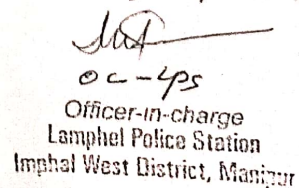 OC-LPS
Officer-in-charge
Lamphel Police Station
Imphal West District, Manipur